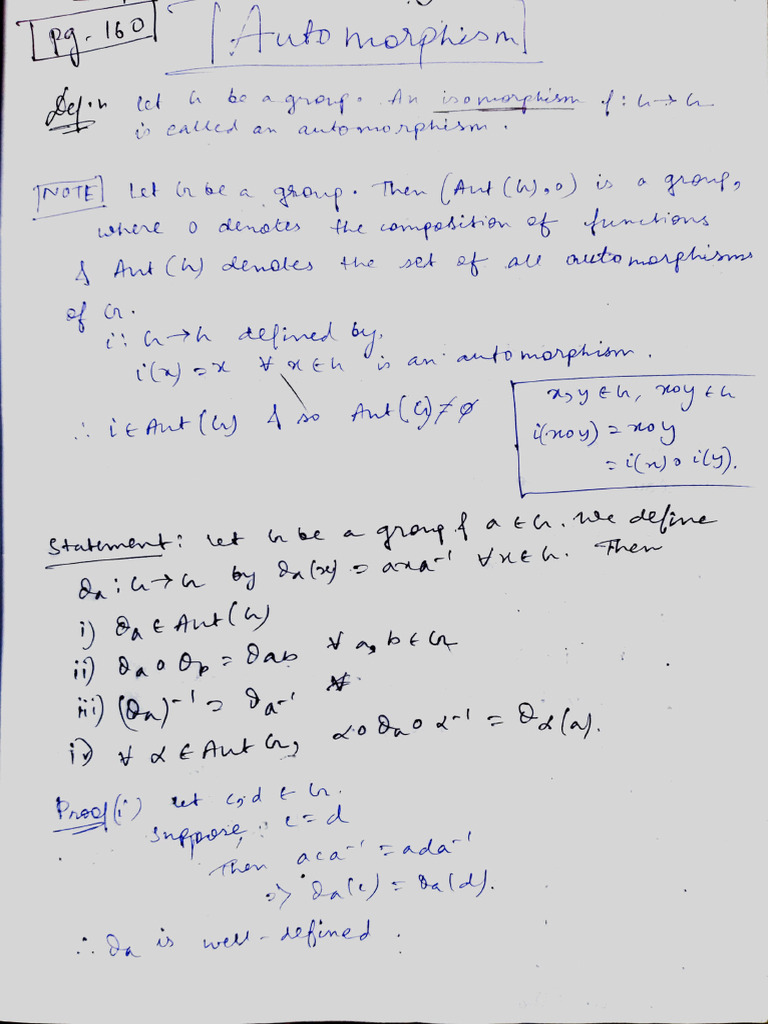 pg-160
Automorphism
Defn Let G be a group. An isomorphism f: G→G
is called an automorphism.
NOTE Let G be a group. Then (Aut(G), o) is a group,
where o denotes the composition of functions
& Aut(G) denotes the set of all automorphisms
of G.
i: G→G defined by,
i(x) = x ∀ x ∈ G is an automorphism.
∴ i ∈ Aut(G) & so Aut(G) ≠ φ
x, y ∈ G, xoy ∈ G
i(xoy) = xoy
= i(x) o i(y).
Statement: Let G be a group & a ∈ G. We define
θa: G→G by θa(x) = axa⁻¹ ∀ x ∈ G. Then
i) θa ∈ Aut(G)
ii) θa o θb = θab ∀ a, b ∈ G
iii) (θa)⁻¹ = θa⁻¹
iv) ∀ α ∈ Aut G, α o θa o α⁻¹ = θα(a).
Proof(i) Let c, d ∈ G.
Suppose, c = d
Then aca⁻¹ = ada⁻¹
⇒ θa(c) = θa(d).
∴ θa is well-defined.